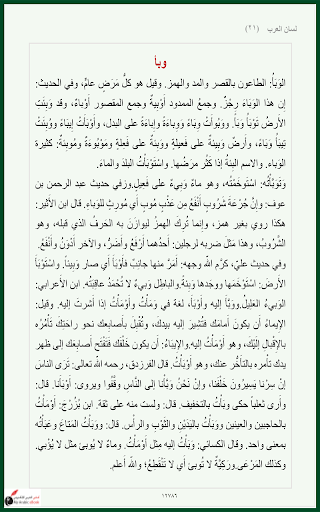 لسان العرب (٢١)
وبأ
الوَبَأُ: الطاعون بالقصر والمد والهمز. وقيل هو كلُّ مَرَضٍ عامٍّ، وفي الحديث:
إن هذا الوَبَاءَ رِجْزٌ. وجمعُ الممدود أَوْبِيةٌ وجمع المقصور أَوْباءٌ، وقد وَبِئَتِ
الأَرضُ تَوْبَأُ وَبَأً. ووَبُوأَتْ وَبَاءً ووِبَاءةً وإِباءةً على البدل، وأَوْبَأَتْ إِيبَاءً ووُبِئَتْ
تِيبَأُ وَبَاءً، وأَرضٌ وَبِيئةٌ على فَعِيلةٍ ووَبِئةٌ على فَعِلةٍ ومَوْبُوءَةٌ ومُوبِئةٌ: كثيرة
الوَباء. والاسم البِئةُ إِذا كَثُر مرَضُها. واسْتَوْبَأْتُ البلدَ والماءَ.
وتَوَبَّأْتُه: اسْتَوخَمْتُه، وهو ماءٌ وَبِيءٌ على فَعِيلٍ.وفي حديث عبد الرحمن بن
عوف: وإِنَّ جُرْعَةَ شَرُوبٍ أَنْفَعُ مِن عَذْبٍ مُوبٍ أَي مُورِثٍ للوَباءِ. قال ابن الأَثير:
هكذا روي بغير همز، وإِنما تُرِكَ الهمزُ ليوازَنَ به الحَرفُ الذي قبله، وهو
الشَّرُوبُ، وهذا مَثَل ضربه لرجلين: أَحدُهما أَرْفَعُ وأَضَرُّ، والآخر أَدْوَنُ وأَنْفَعُ.
وفي حديث عليّ، كرَّم الله وجهه: أَمَرَّ منها جانِبٌ فأَوْبَأَ أَي صار وَبِيئاً. واسْتَوْبَأَ
الأَرضَ: اسْتَوْخَمَها ووجَدها وَبِئةً.والباطِل وَبِيءٌ لا تُحْمَدُ عاقبتُه. ابن الأَعرابي:
الوَبيءُ العَلِيلُ.ووَبَّأَ إِليه وأَوْبَأَ، لغة في ومَأْتُ وأَوْمَأْتُ إِذا أَشرتَ إِليه. وقيل:
الإِيماءُ أَن يكونَ أَمامَك فتُشِيرَ إِليه بيدك، وتُقْبِلَ بأَصابعك نحو راحَتِكَ تَأْمُرُه
بالإِقْبالِ إِلَيْكَ، وهو أَوْمَأْتُ إِليه.والإِيبَاءُ: أَن يكون خَلْفَك فتَفْتَح أَصابِعَك إِلى ظهر
يدك تأْمره بالتأَخُّر عنك، وهو أَوْبَأْتُ. قال الفرزدق، رحمه اللّه تعالى: تَرَى الناسَ
إِنْ سِرْنا يَسِيرُونَ خَلْفَنا، وإِنْ نَحْنُ وَبَّأْنا إِلى النَّاسِ وقَّفُوا ويروى: أَوْبَأْنا. قال:
وأَرى ثعلباً حكى وبَأْتُ بالتخفيف. قال: ولست منه على ثقة. ابن بُزُرْجَ: أَوْمَأْتُ
بالحاجبين والعينين ووَبَأْتُ باليَدَيْنِ والثَّوْبِ والرأْس. قال: ووَبَأْتُ المَتاعَ وعَبَأْتُه
بمعنى واحد. وقال الكسائي: وَبَأْتُ إِليه مثل أَوْمَأْتُ. وماءٌ لا يُوبئُ مثل لا يُؤْبي.
وكذلك المَرْعَى.ورَكِيَّةٌ لا تُوبئُ أَي لا تَنْقَطِعُ؛ واللّه أعلم.
١٢٧٨٦